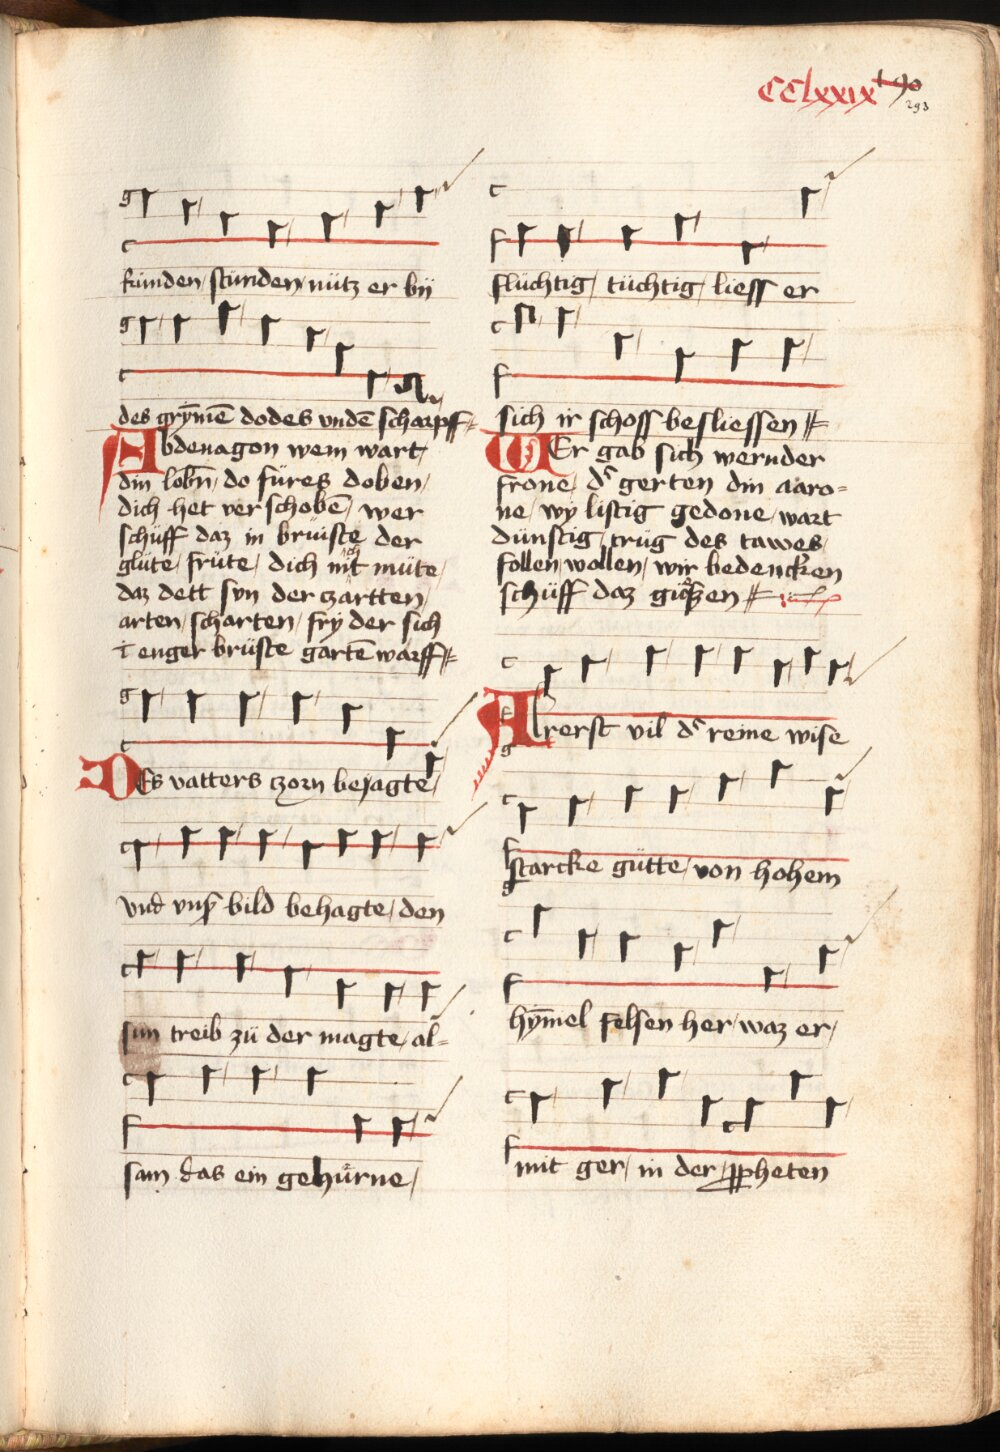 CClxxix
293
kunden / stunden / nütz er bij
des grȳmē dodes vndē scharpff
Abdenagon wem wart
din lobn̄ / do füres doben /
dich het verschobē / wer
schüff daz in brüiste der
glüte / früte / dich nit müte /
daz dett syn der czartten /
arten / scharten / fry der sich
enger brüste gartē warff
Des vatters czorn bejagte /
vnd bild behagte / den
sun treib zü der magte / al=
sam das ein gehürne /
flüchtig / tüchtig / lieff er
sich ir schoss besliessen
Er gab sich wernder
frone / gerten din aaro=
ne / wy listig gedone / wart
dünstig / trüg des tawes
follen / wollen / wir bedencken
schüff daz
Alrerst vil reine wise
starcke gütte / von hohem
hȳmel felsen her / waz er /
mit ger / in der ꝓpheten